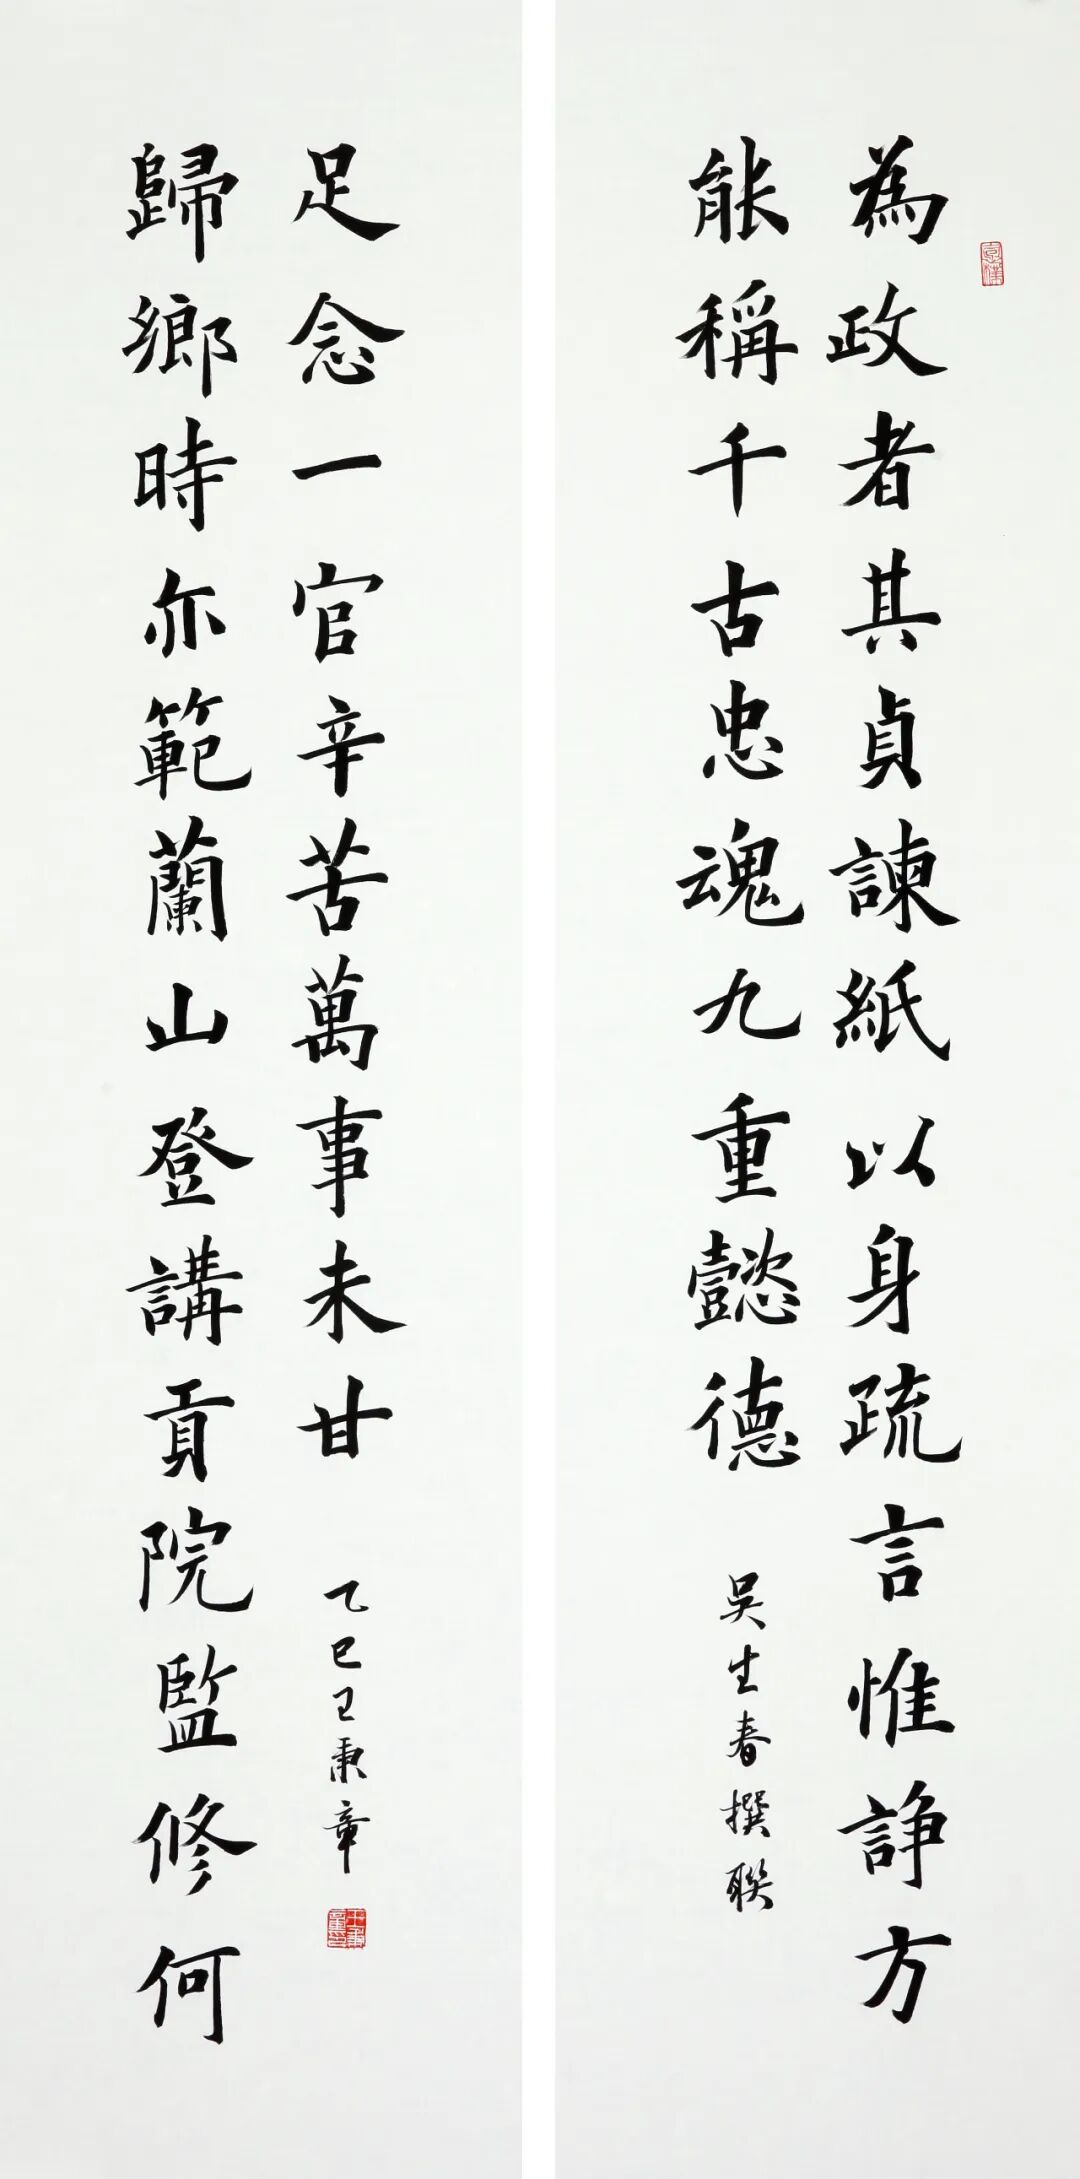 為政者其貞諫紙以身疏言惟諍方
能稱千古忠魂九重懿德
吳生春撰聯
歸鄉時亦範蘭山登講貢院監修何
足念一官辛苦萬事未甘
乙巳王秉章
王秉章印